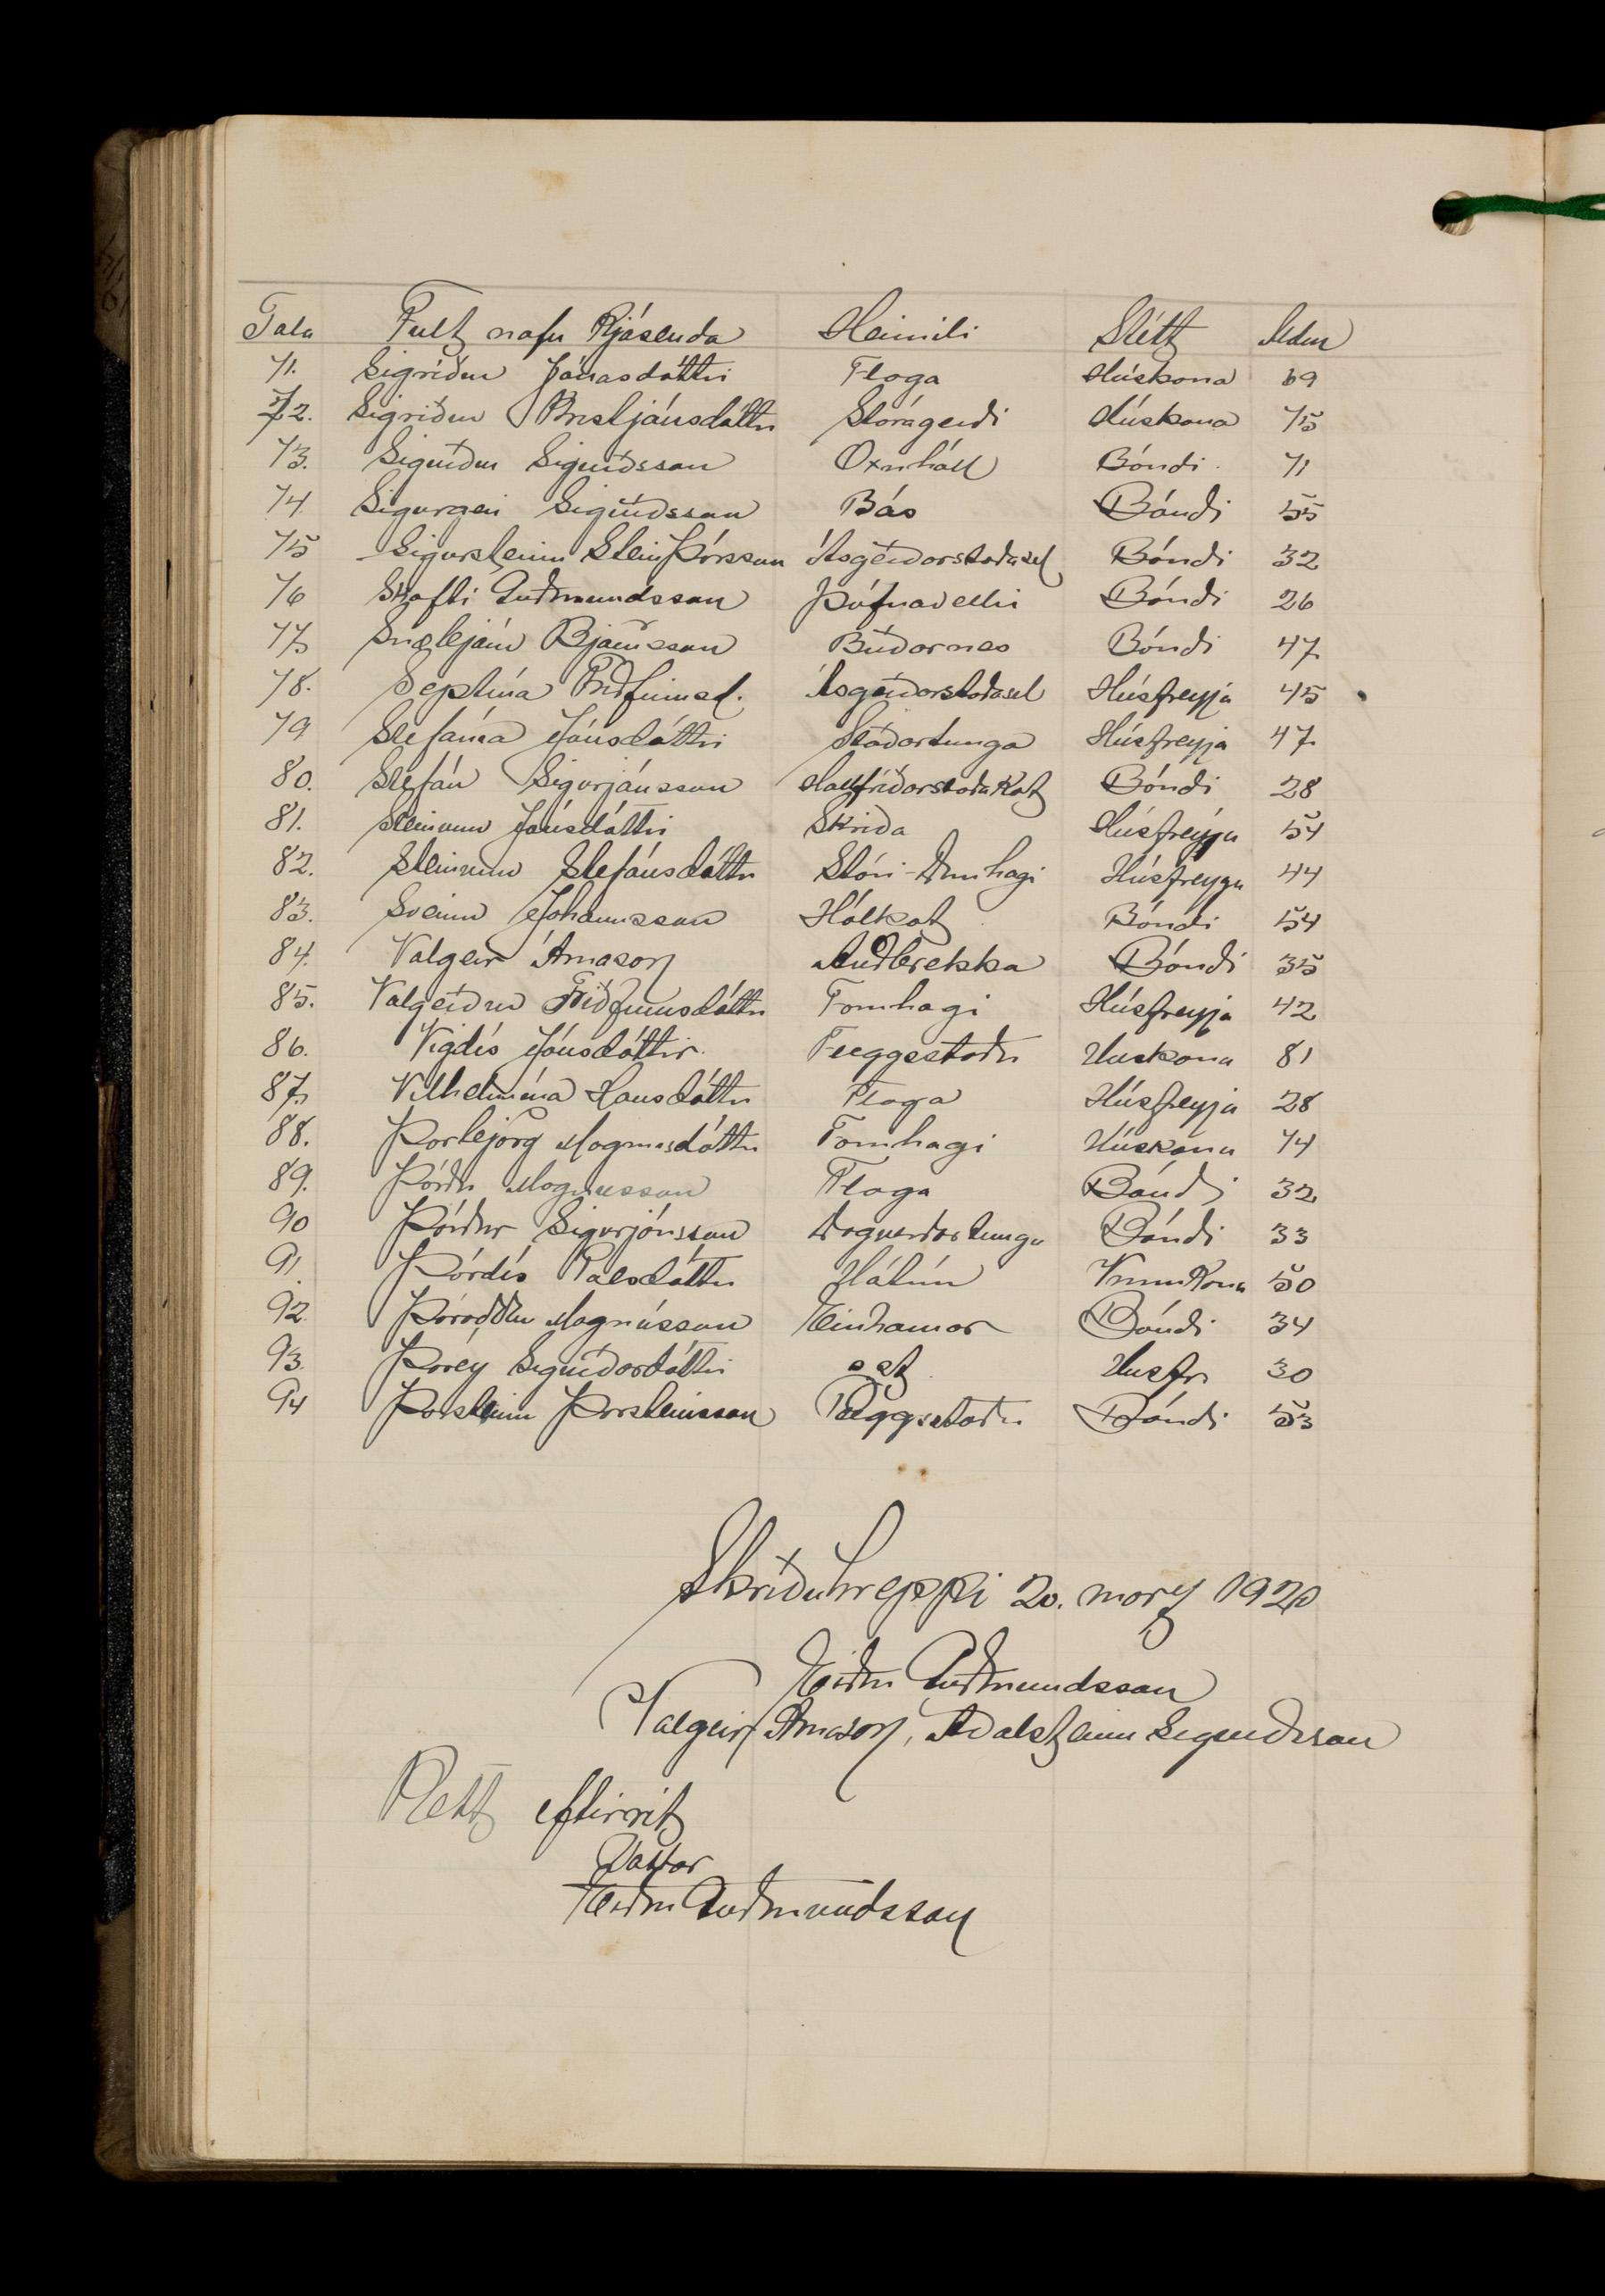 Tala Fult nafn Kjósenda Heimili Stétt Aldur
71. Sigríður Jónasdóttir Flöga Húskona 69
72. Sigríður Kristjánsdóttir Stóragerði Húskona 75
73. Sigurður Sigurðsson Öxnhóll Bóndi 71
74 Sigurgeir Sigurðsson Bás Bóndi 55
75 Sigursteinn Steinþórsson Ásgerðarstaðasel Bóndi 32
76 Skafti Guðmundsson Þúfnavellir Bóndi 26
77 Snæbjörn Björnsson Búðarnes Bóndi 47
78. Septína Friðfinnsd. Ásgerðarstaðasel Húsfreyja 45
79 Stefanía Jónsdóttir Staðartunga Húsfreyja 47
80. Stefán Sigurjónsson Hallfríðarstaðakot Bóndi 28
81. Steinunn Jónsdóttir Skriða Húsfreyja 54
82. Steinunn Stefánsdóttir Stóri-Dunhagi Húsfreyja 44
83. Sveinn Jóhannsson Hólkot Bóndi 54
84. Valgeir Árnason Auðbrekka Bóndi 35
85. Valgerður Friðfinnsdóttir Fornhagi Húsfreyja 42
86. Vigdís Jónsdóttir Flöggustaðir Huskona 81
87. Vilhelmína Hansdóttir Flöga Húsfreyja 28
88. Þorbjörg Magnusdóttir Fornhagi Húskona 74
89. Þórður Magnusson Flöga Bóndi 32
90 Þórður Sigurjónsson Dagverðartunga Bóndi 33
91 Þórdís Pálsdóttir Hátún Vinnukona 50
92. Þóroddur Magnússon Einhamar Bóndi 34
93. Þórey Sigurðardóttir sst Husfr 30
94 Þorsteinn Þorsteinsson Flöggustaðir Bóndi 53
Skriðuhreppi 20. marz 1920
Eiður Guðmundsson
Valgeir Árnason, Aðalsteinn Sigurðsson
Rétt eftirrit
Vottar
Eiður Guðmundsson